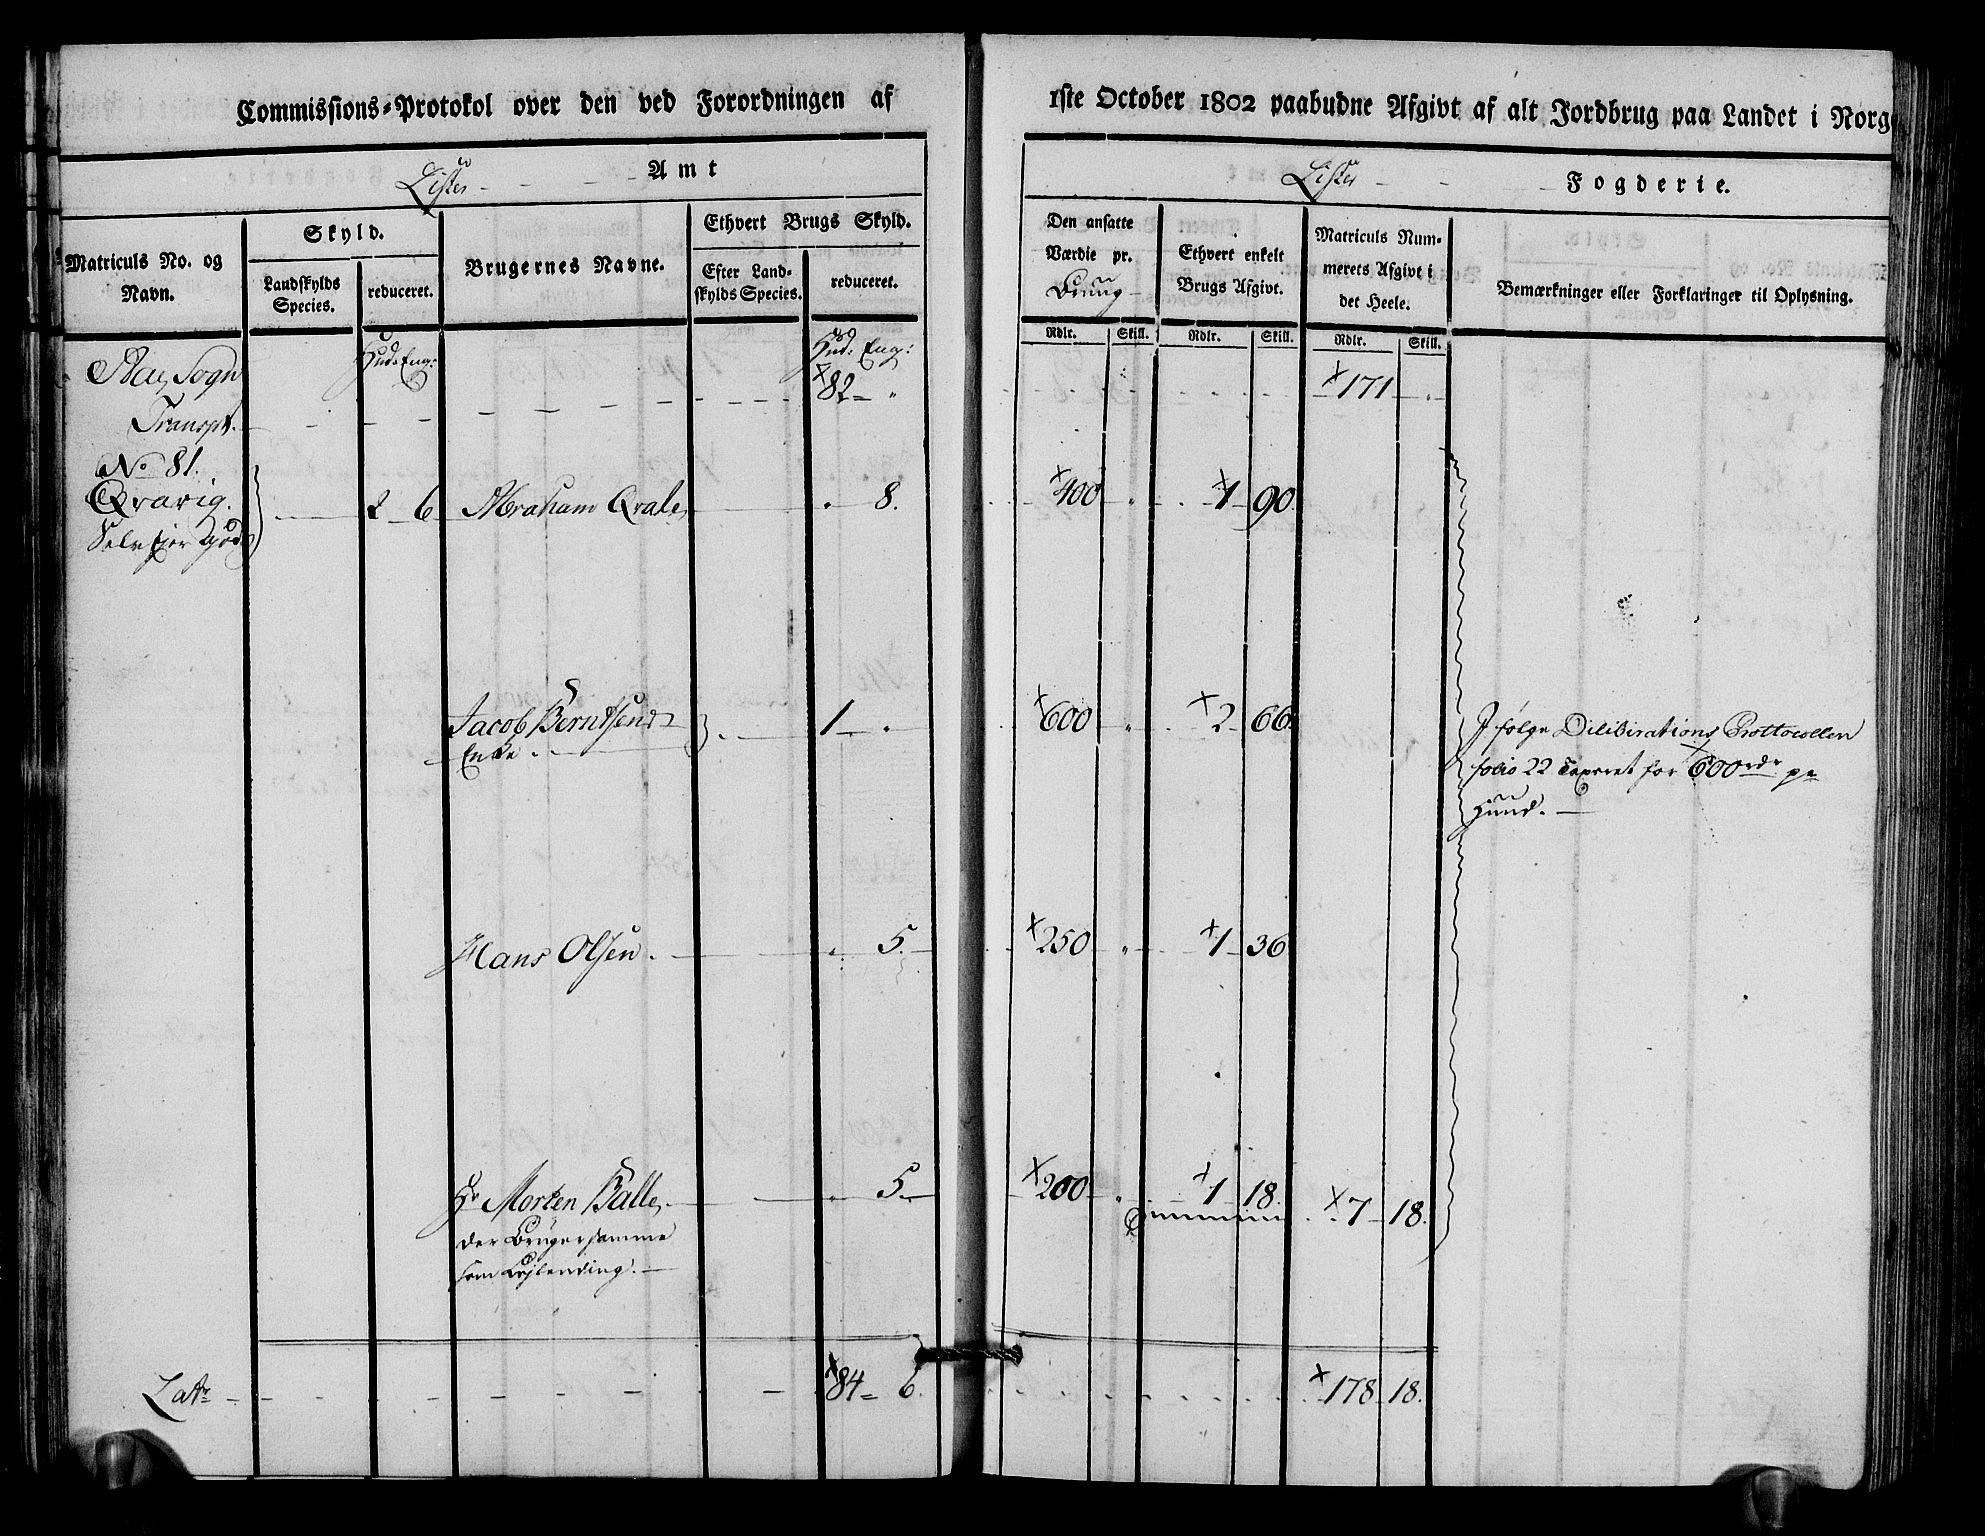 Commissions-Protokol over den ved Forordningen af 1ste October 1802 paabudne Afgivt af alt Jordbrug paa Landet i Norge
Lister Amt
Lister Fogderie.
Matriculs No. og Navn.
Skyld.
Landskylds Species.
reduceret.
Brugernes Navne.
Ethvert Brugs Skyld.
Efter Landskylds Species.
reduceret.
Den ansatte Værdie pr. Bruug
Ethvert enkelt Brugs Afgivt.
Matriculs Nummerets Afgivt i det Heele.
Bemærkninger eller Forklaringer til Oplysning.
Rdlr. Skill. Rdlr. Skill. Rdlr. Skill.
Hud: Eng: Hud: Eng:
Sogn
Transpt. 82 " 171 "
No 81.
Qvavig. 2 6 Abraham Qvale " 8. 400 " 1 90.
Selv Ejer Gods
Jacob Berndsens 1 " 600 " 2 66.
Enke
J følge Dilibirations Prottocollen
folio 22 Taxeret for 600 rdr pr
Huud.
Hans Olsen. " 5. 250 " 1 36
Hr Morten Balle, " 5. 200 " 1 18. 7 18.
der Bruger samme
som Lejlending.
Latr 84 6. 178 18.